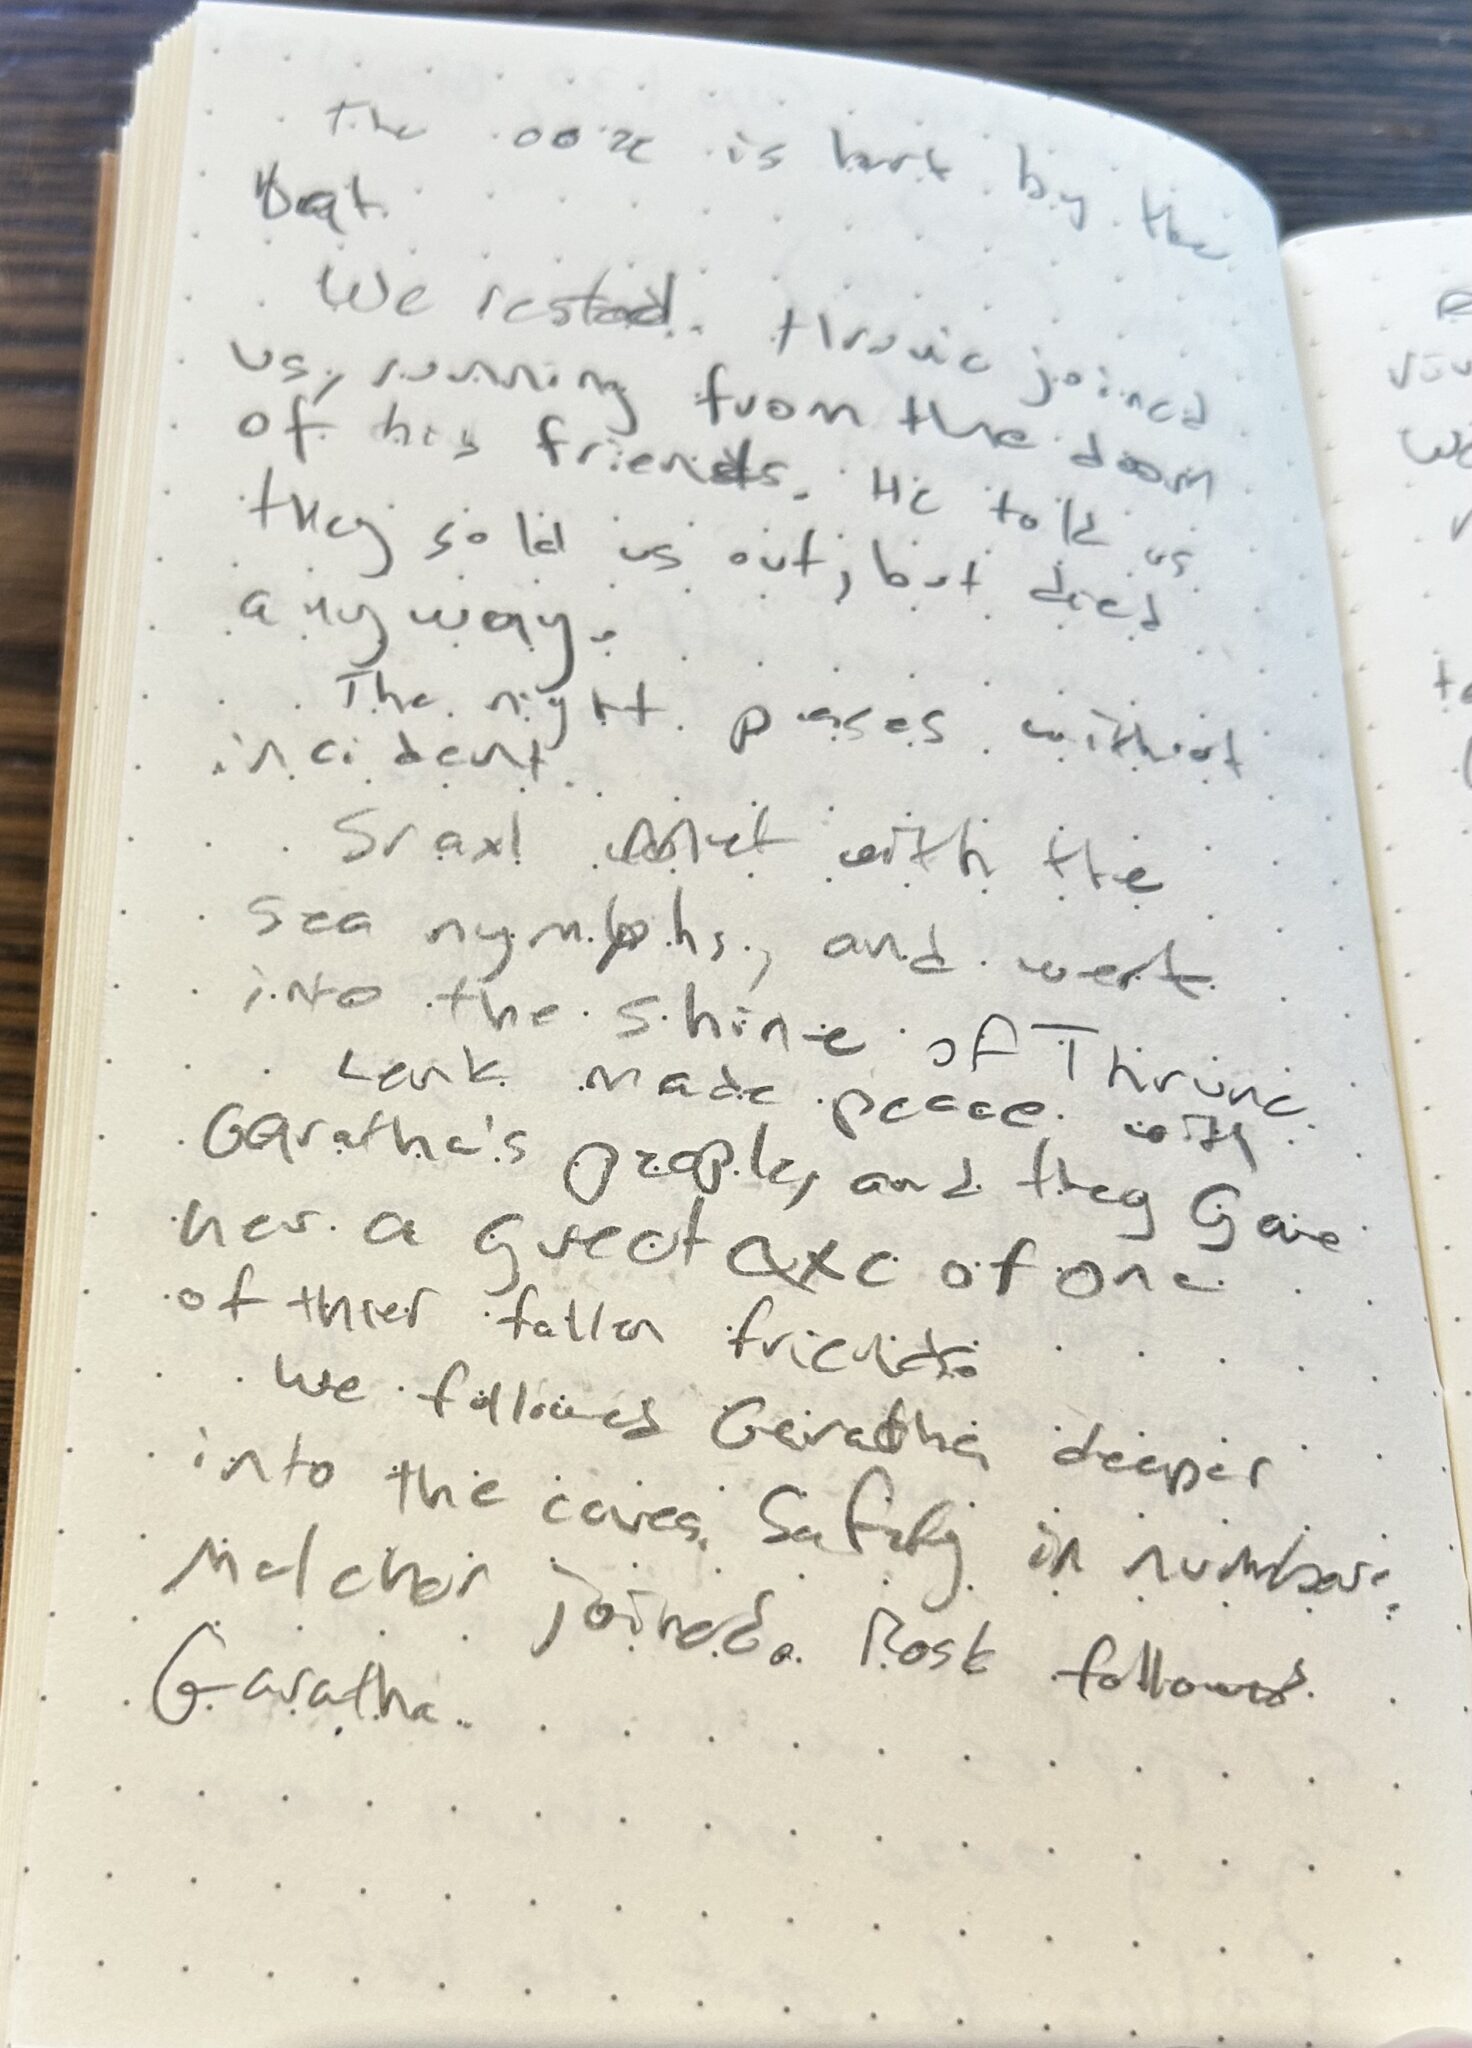 The ooze is hurt by the
Boat.
We rested. throuic joined
us, running from the doom
of his friends. He told us
they sold us out, but died
anyway.
The night passes without
incident.
Sraxl met with the
sea nymphs, and went
into the shine of Thrunc
Lenk made peace with
Garatha's people, and they Gave
her a great axe of one
of thier fallen friends.
We followed Garatha deeper
into the caves. Safety in numbers.
Melchor joined. Rosk followed
Garatha.
to